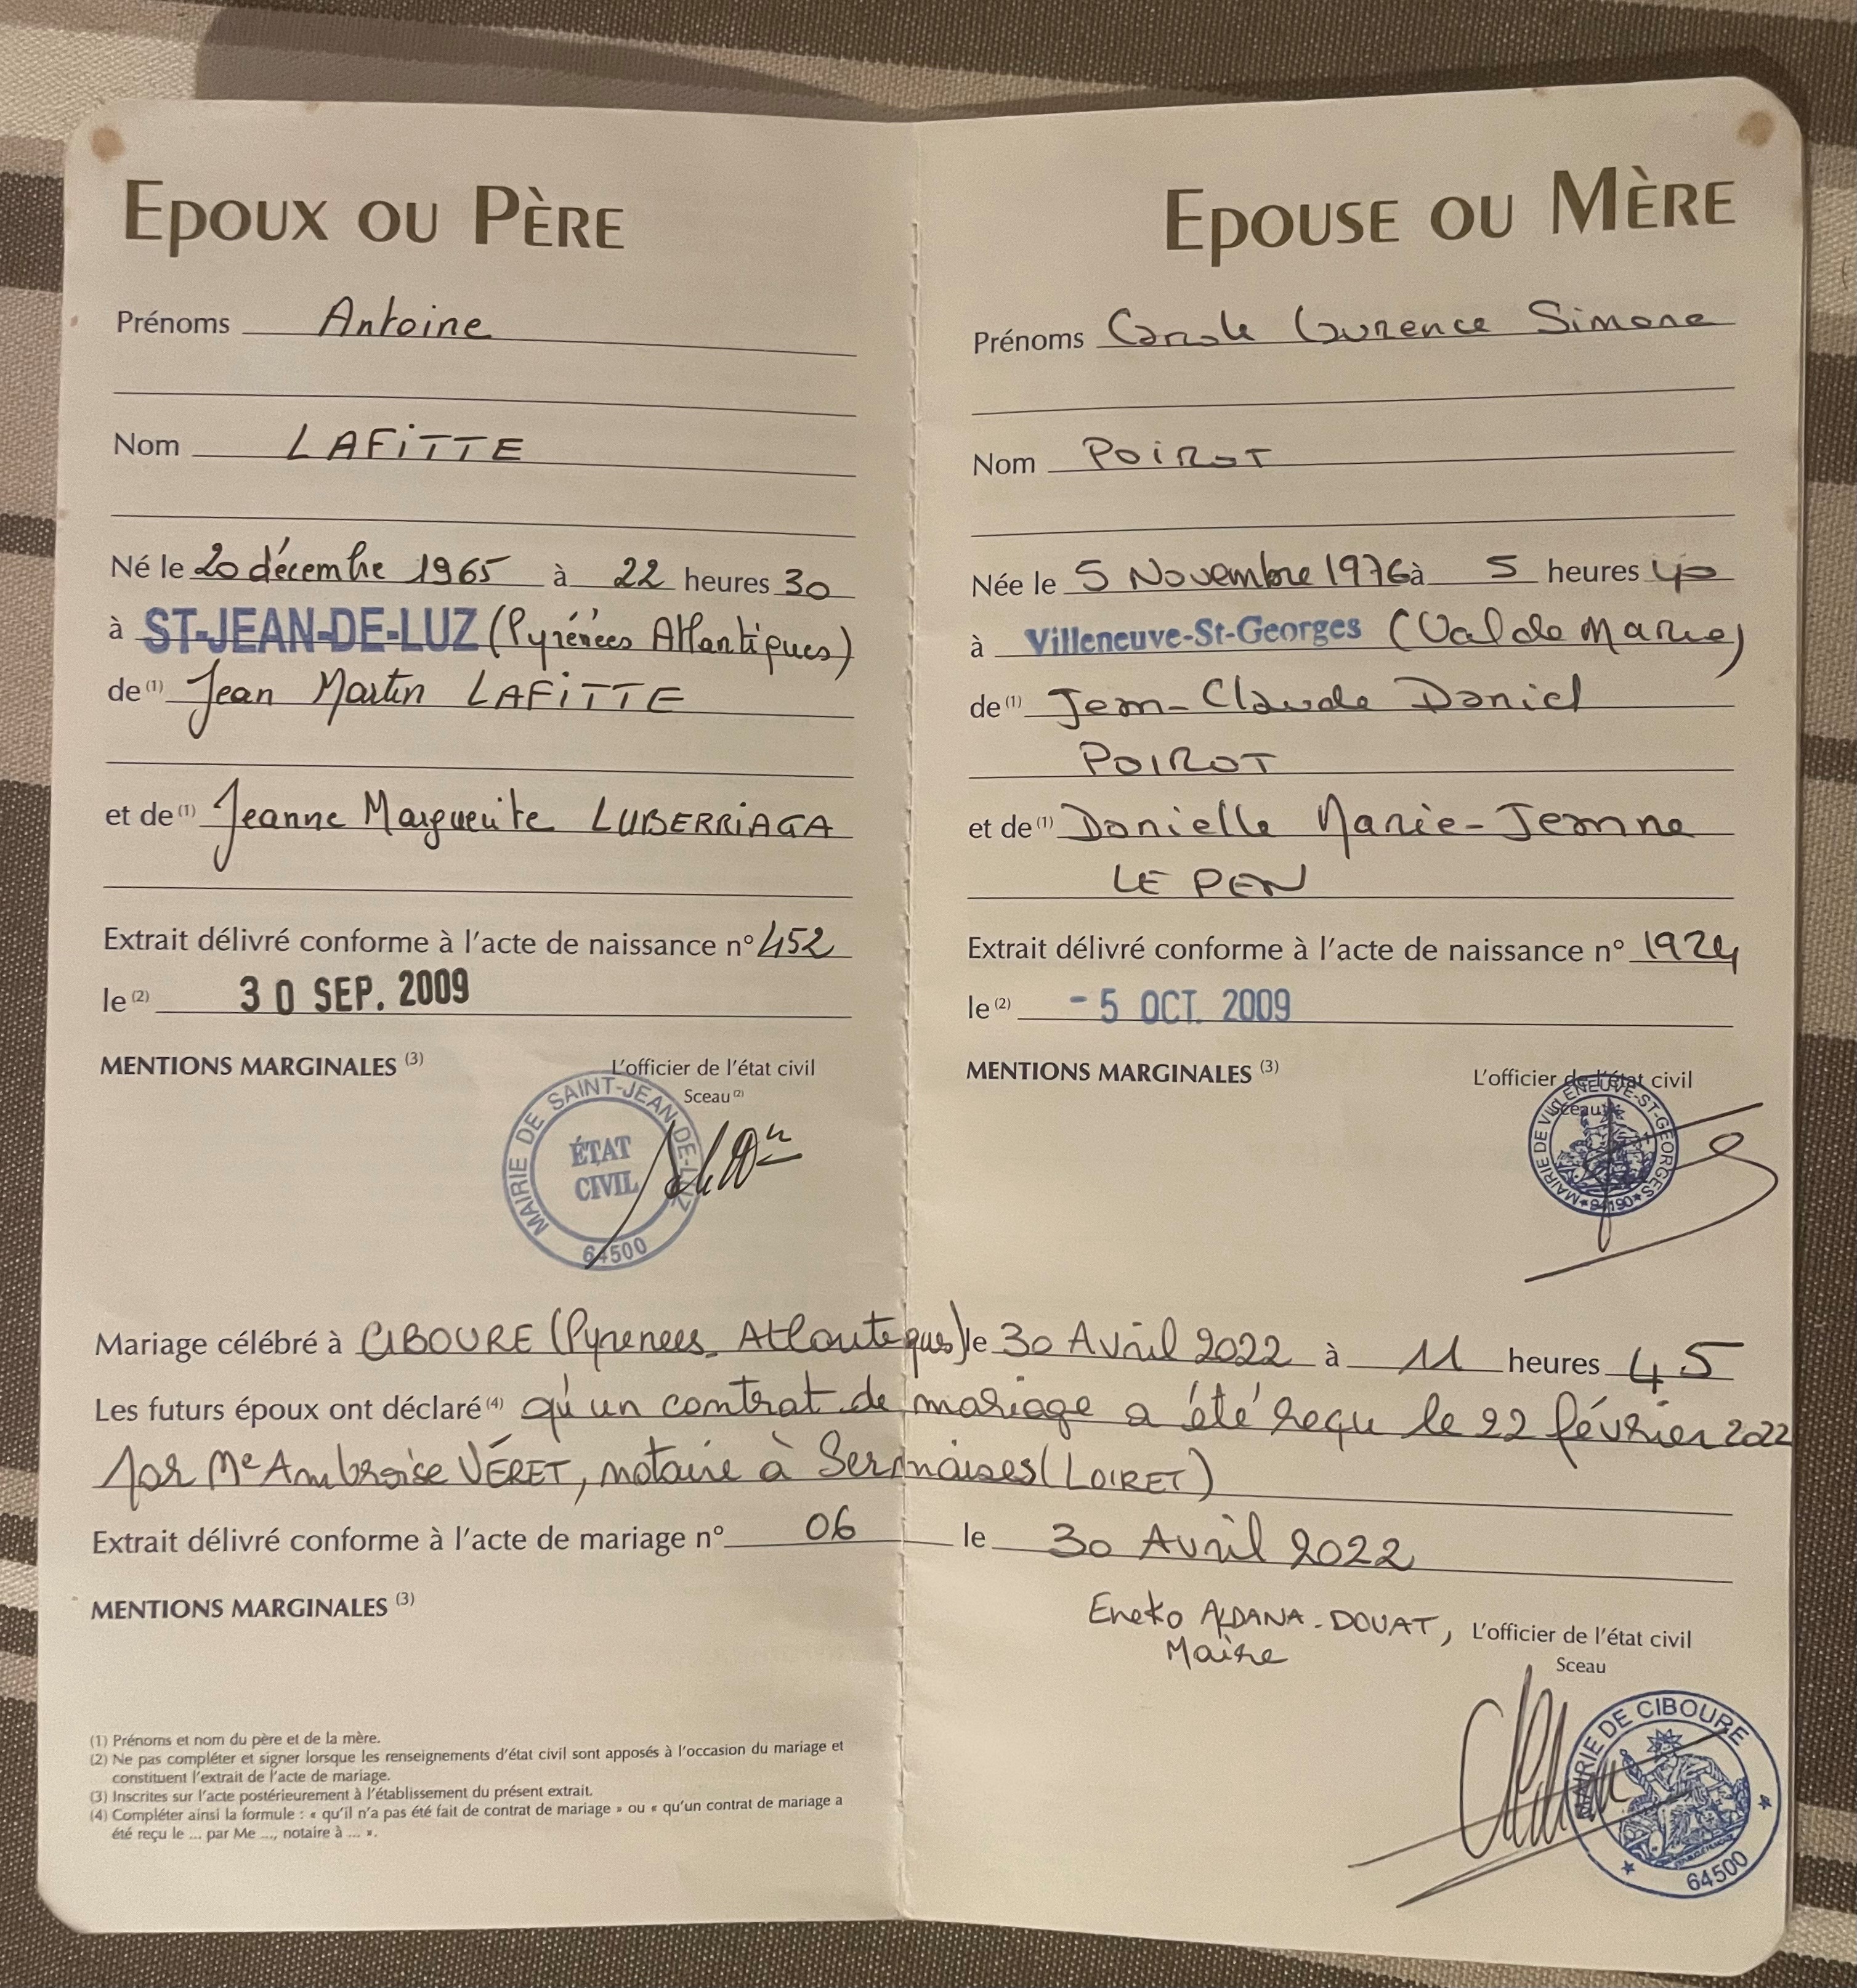 EPOUX OU PÈRE
Prénoms Antoine
Nom LAFITTE
Né le 20 décembre 1965 à 22 heures 30
à ST-JEAN-DE-LUZ (Pyrénées Atlantiques)
de (1) Jean Martin LAFITTE
et de (1) Jeanne Marguerite LUBERRIAGA
Extrait délivré conforme à l'acte de naissance n° 452
le (2) 30 SEP. 2009
MENTIONS MARGINALES (3)
L'officier de l'état civil
Sceau (2)
MAIRIE DE SAINT-JEAN-DE-LUZ
ÉTAT
CIVIL
64500
EPOUSE OU MÈRE
Prénoms Carole Laurence Simone
Nom POIROT
Née le 5 Novembre 1976 à 5 heures 40
à Villeneuve-St-Georges (Val de Marne)
de (1) Jean-Claude Daniel
POIROT
et de (1) Danielle Marie-Jeanne
LE PEN
Extrait délivré conforme à l'acte de naissance n° 1924
le (2) - 5 OCT. 2009
MENTIONS MARGINALES (3)
L'officier de l'état civil
Sceau
MAIRIE DE VILLENEUVE-ST-GEORGES
94190
Mariage célébré à CIBOURE (Pyrenees-Atlantiques) le 30 Avril 2022 à 11 heures 45
Les futurs époux ont déclaré (4) qu'un contrat de mariage a été reçu le 22 février 2022
par Me Ambroise VÉRET, notaire à Sermaises (LOIRET)
Extrait délivré conforme à l'acte de mariage n° 06 le 30 Avril 2022
MENTIONS MARGINALES (3)
Eneko ALDANA-DOUAT, L'officier de l'état civil
Maire
Sceau
MAIRIE DE CIBOURE
64500
(1) Prénoms et nom du père et de la mère.
(2) Ne pas compléter et signer lorsque les renseignements d'état civil sont apposés à l'occasion du mariage et
constituent l'extrait de l'acte de mariage.
(3) Inscrites sur l'acte postérieurement à l'établissement du présent extrait.
(4) Compléter ainsi la formule : « qu'il n'a pas été fait de contrat de mariage » ou « qu'un contrat de mariage a
été reçu le ... par Me ..., notaire à ... ».